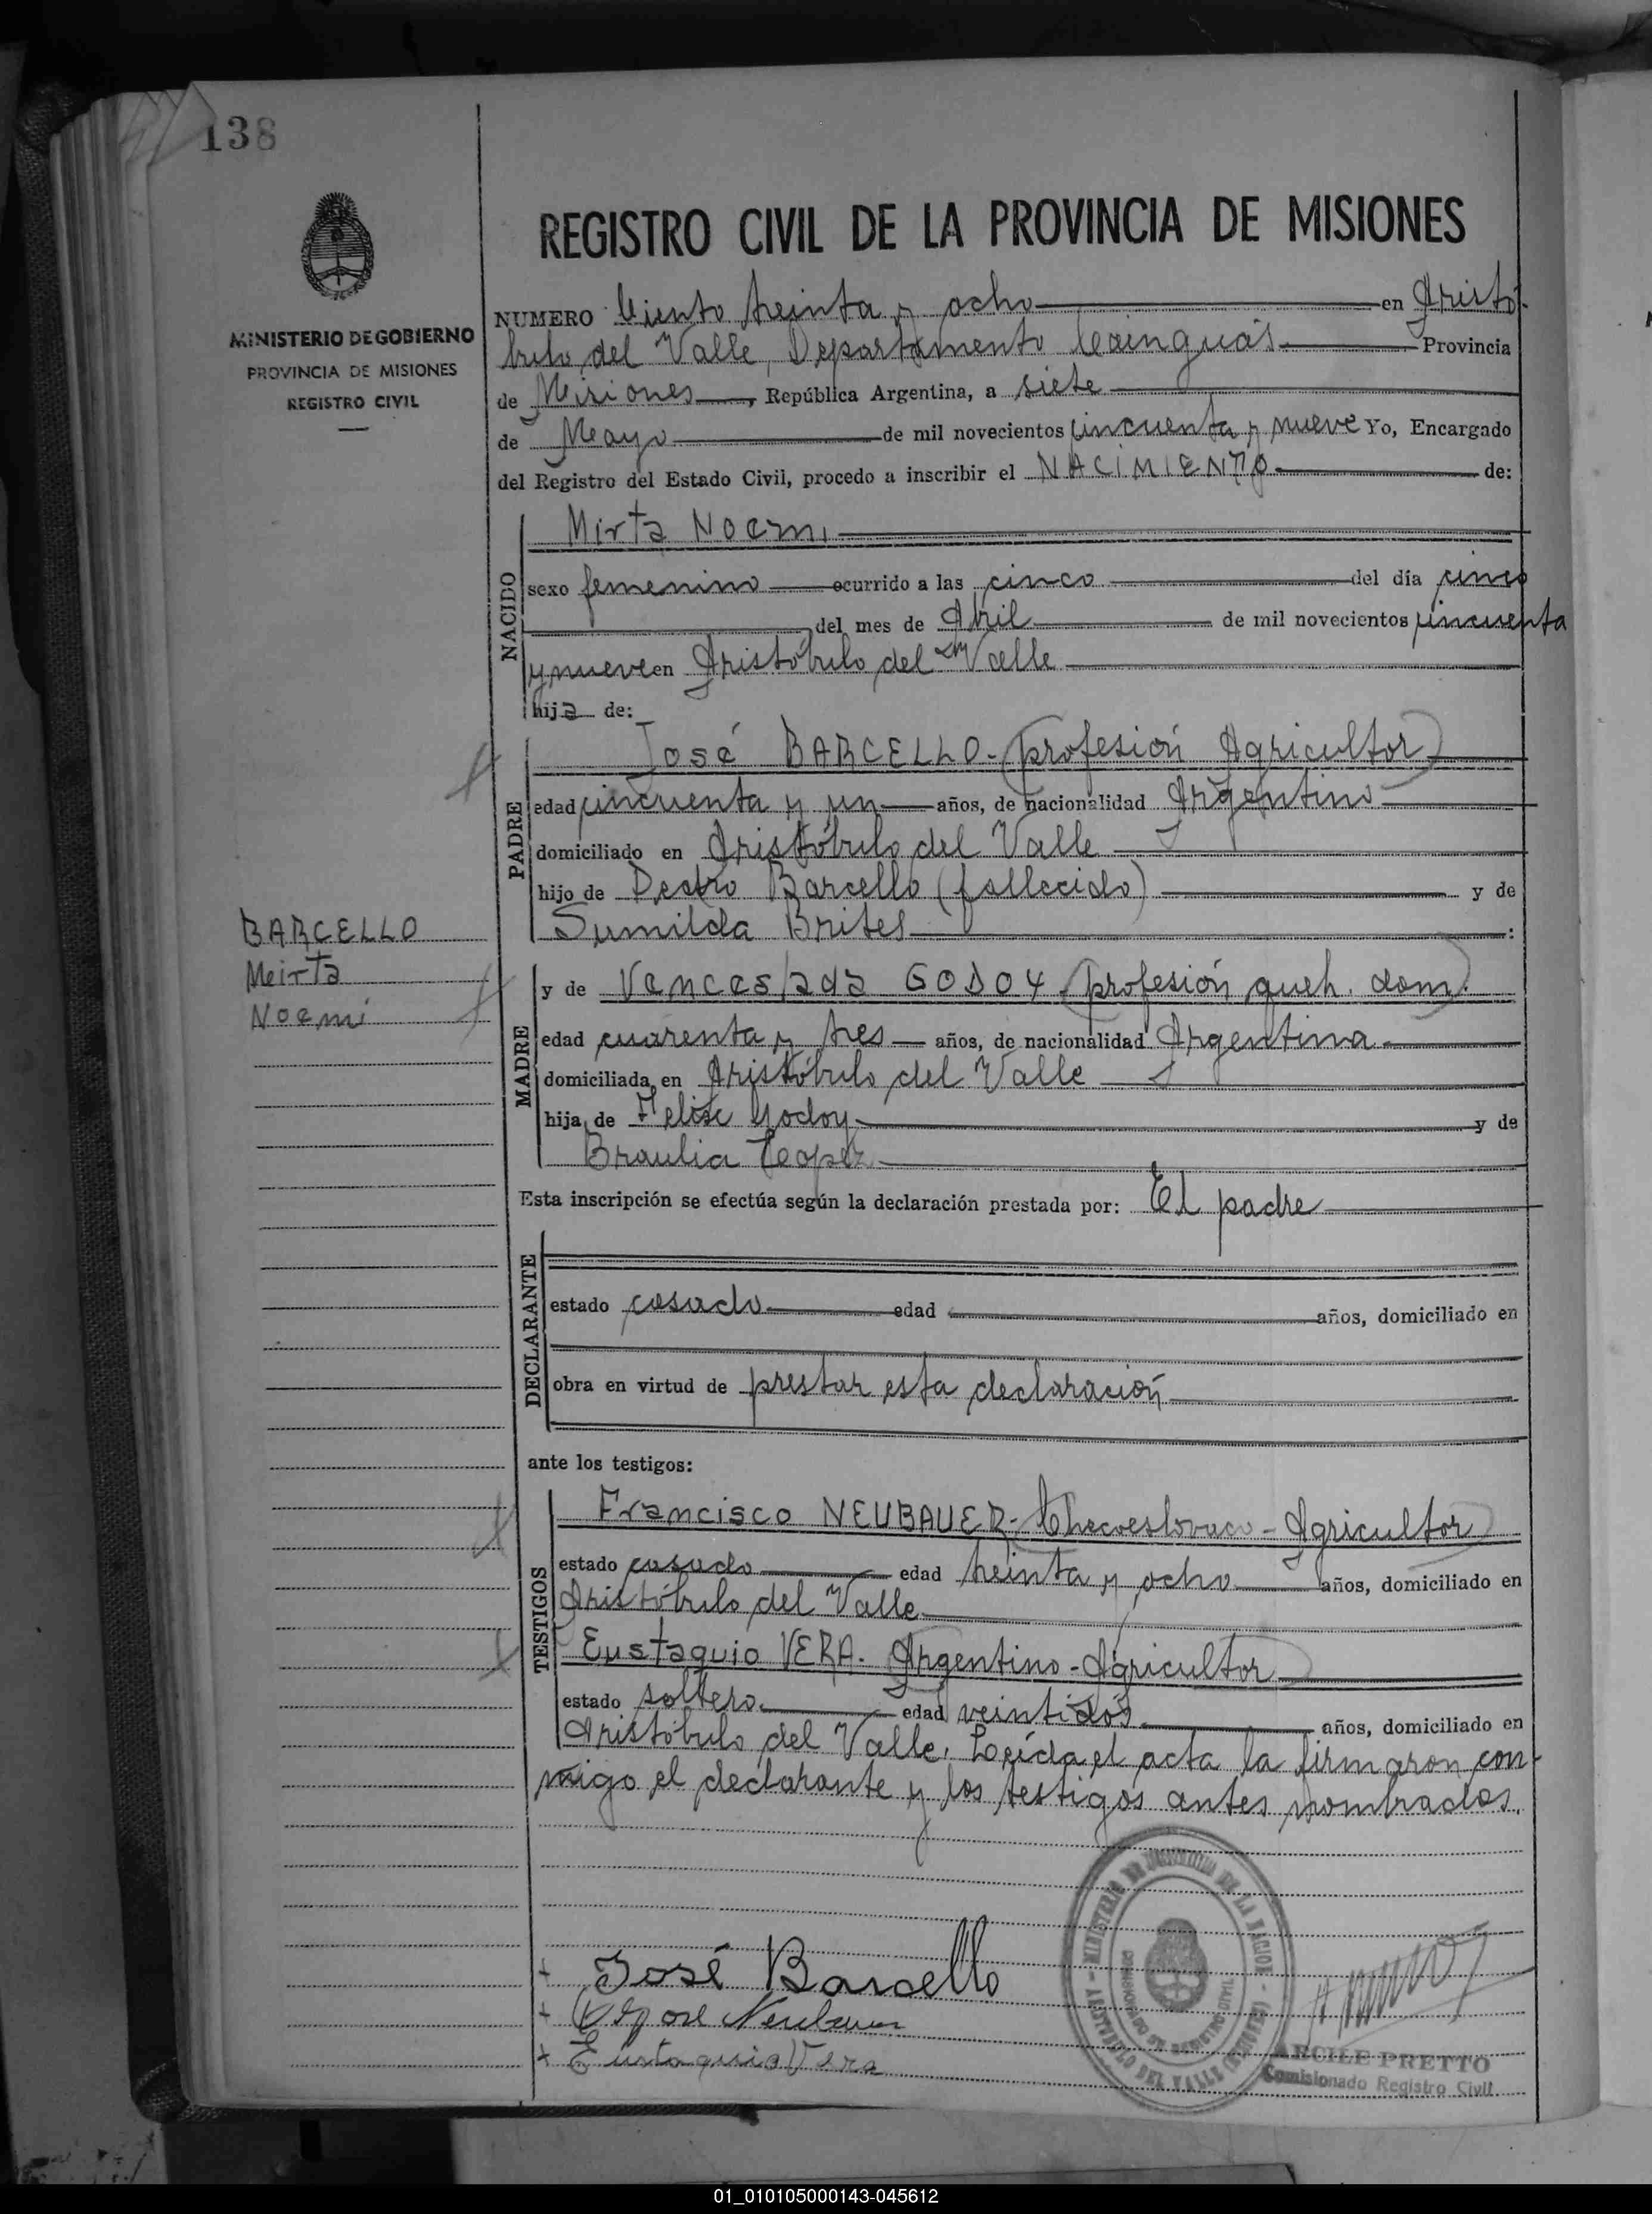 138
MINISTERIO DE GOBIERNO
PROVINCIA DE MISIONES
REGISTRO CIVIL
REGISTRO CIVIL DE LA PROVINCIA DE MISIONES
NUMERO Ciento treinta y ocho en Aristó-
bulo del Valle, Departamento Cainguás Provincia
de Misiones, República Argentina, a siete
de Mayo de mil novecientos cincuenta y nueve Yo, Encargado
del Registro del Estado Civil, procedo a inscribir el NACIMIENTO de:
NACIDO
Mirta Noemi
sexo femenino ocurrido a las cinco del día cinco
del mes de Abril de mil novecientos cincuenta
y nueve en Aristóbulo del Valle
hija de:
PADRE
José BARCELLO - (profesión Agricultor)
edad cincuenta y un años, de nacionalidad Argentino
domiciliado en Aristóbulo del Valle
hijo de Pedro Barcello (fallecido) y de
Sumilda Brites :
BARCELLO
Mirta
Noemi
MADRE
y de Venceslada GODOY (profesión queh. dom.)
edad cuarenta y tres años, de nacionalidad Argentina
domiciliada en Aristóbulo del Valle
hija de Felix Godoy y de
Braulia Lopez
Esta inscripción se efectúa según la declaración prestada por: El padre
DECLARANTE
estado casado edad años, domiciliado en
obra en virtud de prestar esta declaración
ante los testigos:
TESTIGOS
Francisco NEUBAUER - Checoeslovaco - Agricultor)
estado casado edad treinta y ocho años, domiciliado en
Aristóbulo del Valle
Eustaquio VERA. Argentino - Agricultor
estado soltero edad veintidós años, domiciliado en
Aristóbulo del Valle. Leída el acta la firmaron con-
migo el declarante y los testigos antes nombrados.
José Barcello
Neubauer
Eustaquio Vera
MINISTERIO DE DE LA NACION - ARISTOBULO DEL VALLE
ARCILE PRETTO
Comisionado Registro Civil
01_010105000143-045612